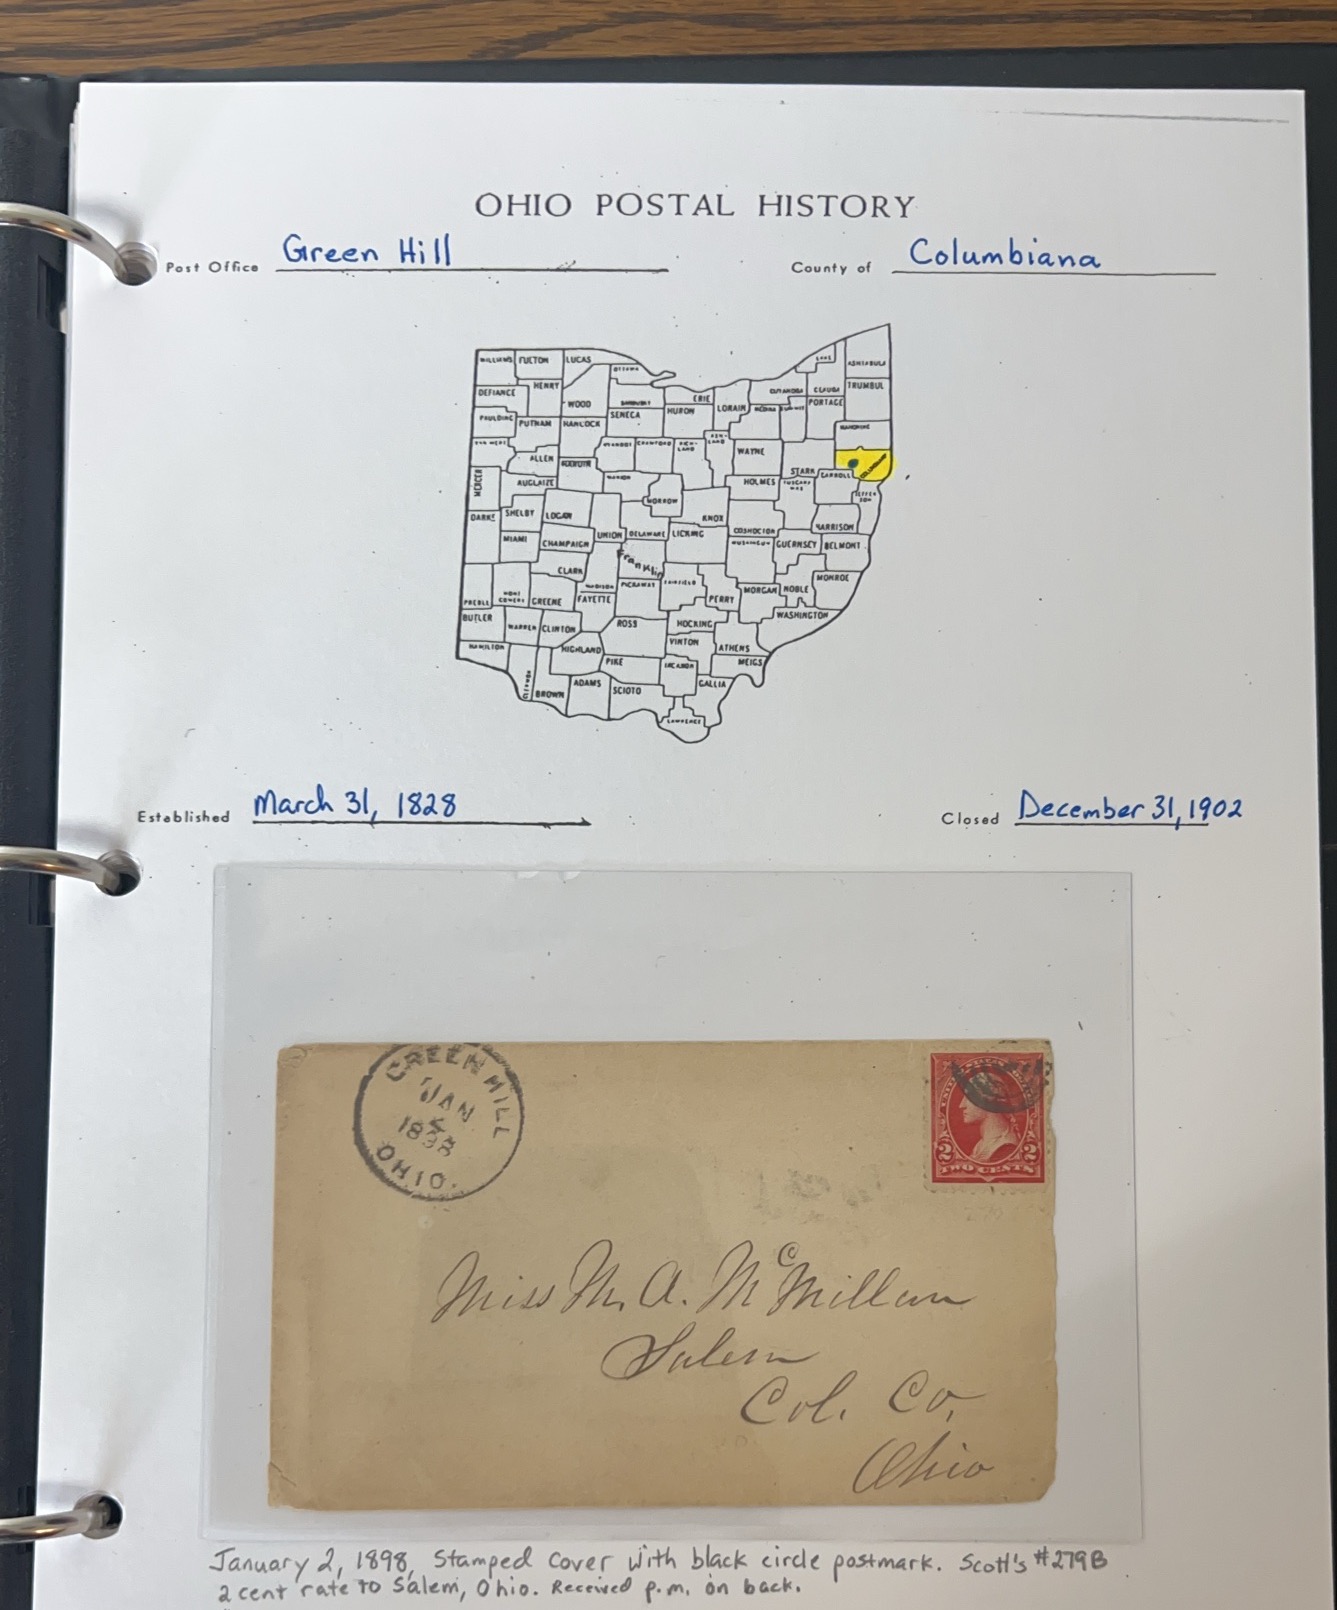 OHIO POSTAL HISTORY
Post Office Green Hill County of Columbiana
WILLIAMS FULTON LUCAS
OTTAWA
LAKE
ASHTABULA
DEFIANCE HENRY WOOD
SANDUSKY ERIE
CUYAHOGA GEAUGA TRUMBUL
PAULDING PUTNAM HANCOCK SENECA HURON LORAIN MEDINA SUMMIT PORTAGE
MAHONING
VAN WERT ALLEN HARDIN WYANDOT CRAWFORD RICH-
LAND ASH-
LAND WAYNE STARK COLUMBIANA
MERCER AUGLAIZE MARION MORROW HOLMES TUSCARA
WAS CARROLL JEFFER
SON
DARKE SHELBY LOGAN UNION DELAWARE KNOX COSHOCTON HARRISON
MIAMI CHAMPAIGN Franklin LICKING MUSKINGUM GUERNSEY BELMONT
CLARK MADISON PICKAWAY FAIRFIELD PERRY MORGAN NOBLE MONROE
PREBLE MONT
GOMERY GREENE FAYETTE WASHINGTON
BUTLER WARREN CLINTON ROSS HOCKING
HAMILTON HIGHLAND VINTON ATHENS
PIKE JACKSON MEIGS
CLERMONT BROWN ADAMS SCIOTO GALLIA
LAWRENCE
Established March 31, 1828 Closed December 31, 1902
GREEN HILL
JAN
2
1898
OHIO.
2 2
TWO CENTS
Miss M. A. McMillan
Salem
Col. Co,
Ohio
January 2, 1898, Stamped cover with black circle postmark. Scott's #279B
2 cent rate to Salem, Ohio. Received p.m. on back.